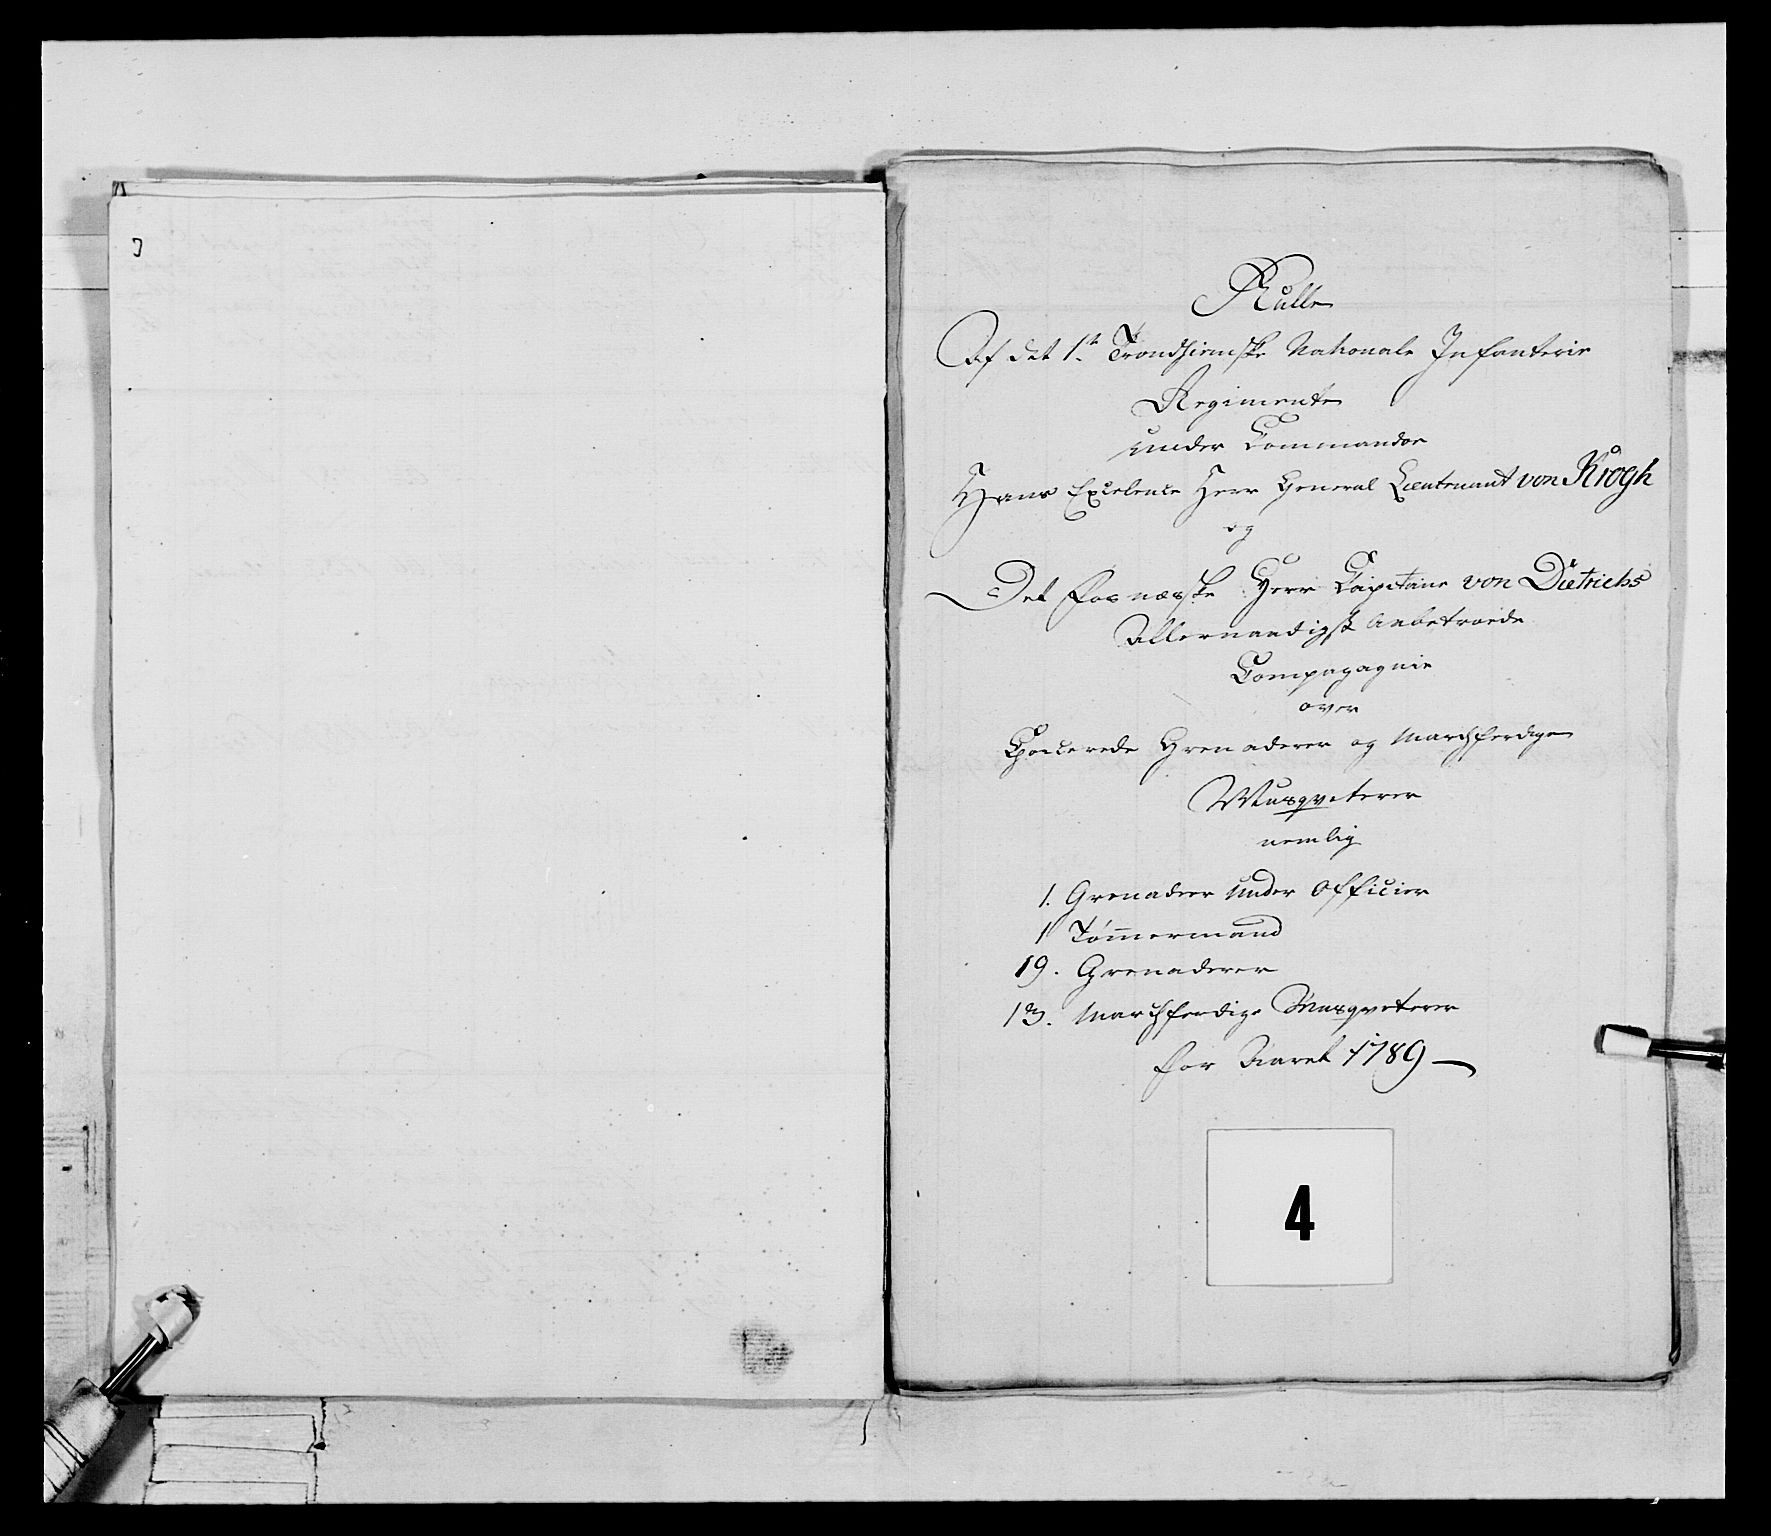 Rulle
Af det 1te Trondhiemske Nationale Infanterie
Regimente
under Commandoe
Hans Excelence Herr General Lieutenant von Krogh
og
Det Fosnæsske Herr Capitaine von Dietrichs
Allernaadigst Anbetroede
Compagagnie
over
Grenaderer og Marchferdige
Musqveterer
nemlig
1. Grenadeer Under Officier
1 Tømmermand
19. Grenaderer
13. Marchferdige Musqveterer
for Aaret 1789
4